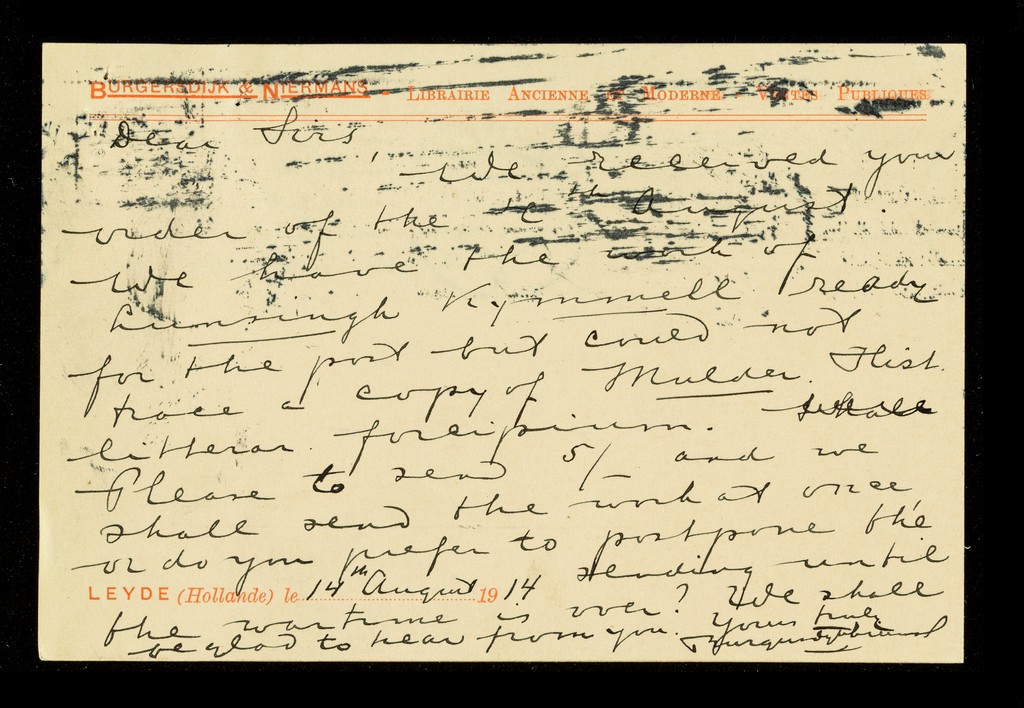 BURGERSDIJK & NIERMANS - LIBRAIRIE ANCIENNE ET MODERNE - VENTES PUBLIQUES
Dear Sirs,
We received your
order of the th August.
We have the work of
Lunsingh Kymmell ready
for the post but could not
trace a copy of Mulder. Hist.
litterar. foreipium.
Please to send 5/– and we
shall send the work at once,
or do you prefer to postpone the
sending until
LEYDE (Hollande) le 14th August 1914
the wartime is over? We shall
be glad to hear from you. Yours truly